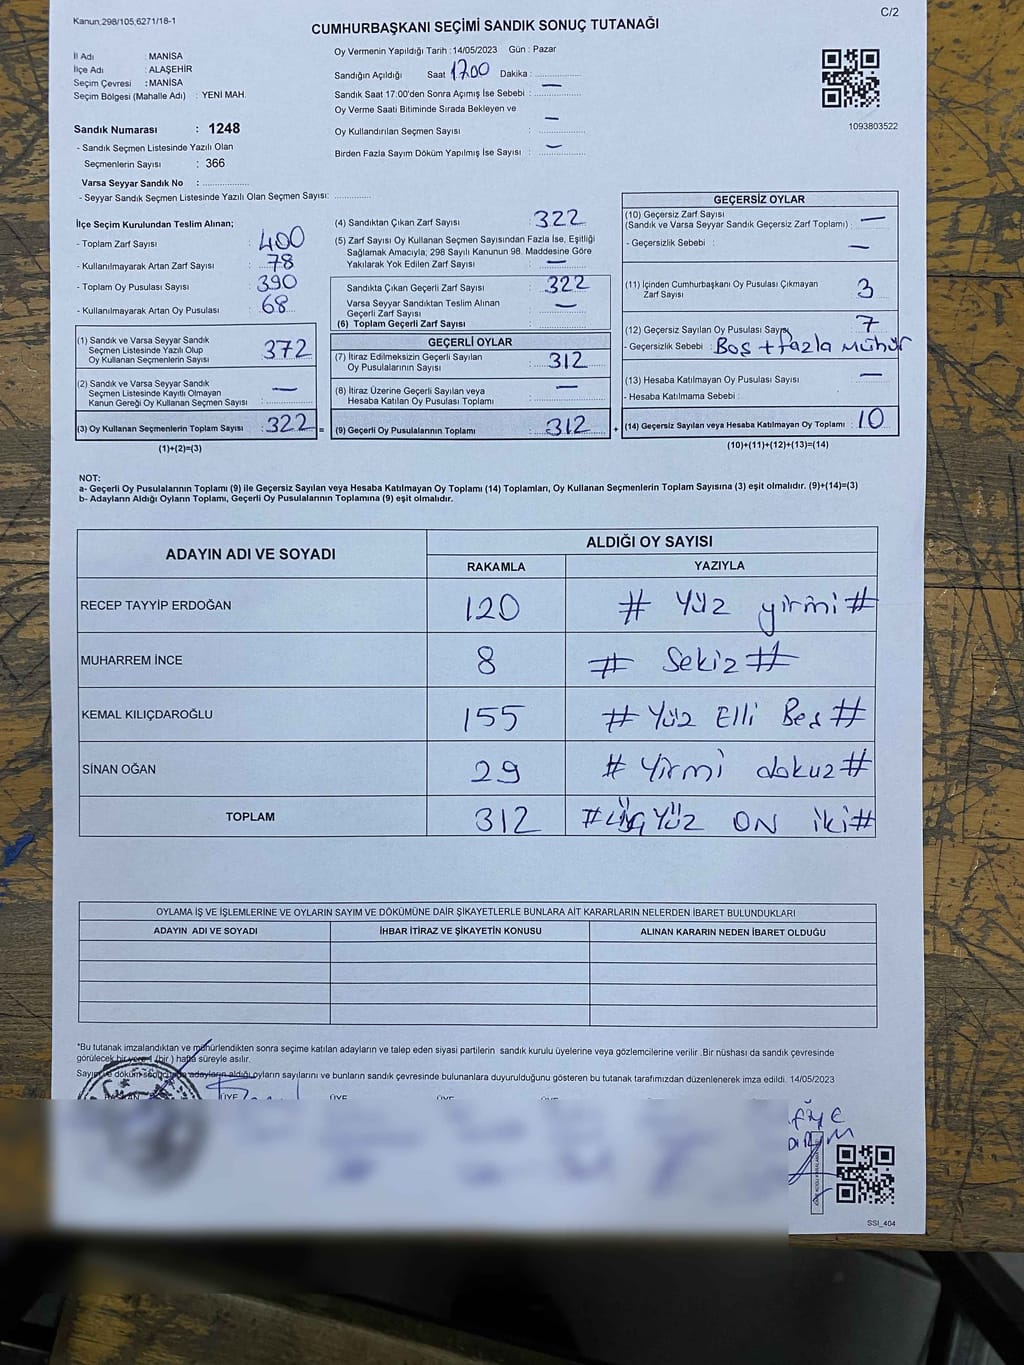 Kanun,298/105,6271/18-1
C/2
CUMHURBAŞKANI SEÇİMİ SANDIK SONUÇ TUTANAĞI
İl Adı : MANİSA
İlçe Adı : ALAŞEHİR
Seçim Çevresi : MANİSA
Seçim Bölgesi (Mahalle Adı) : YENİ MAH.
Sandık Numarası : 1248
- Sandık Seçmen Listesinde Yazılı Olan
Seçmenlerin Sayısı : 366
Varsa Seyyar Sandık No : ..................
- Seyyar Sandık Seçmen Listesinde Yazılı Olan Seçmen Sayısı: ..............
Oy Vermenin Yapıldığı Tarih : 14/05/2023 Gün : Pazar
Sandığın Açıldığı Saat 17.00 Dakika : —
Sandık Saat 17:00'den Sonra Açımış İse Sebebi : —
Oy Verme Saati Bitiminde Sırada Bekleyen ve
Oy Kullandırılan Seçmen Sayısı : —
Birden Fazla Sayım Döküm Yapılmış İse Sayısı : —
1093803522
İlçe Seçim Kurulundan Teslim Alınan;
- Toplam Zarf Sayısı : 400
- Kullanılmayarak Artan Zarf Sayısı : 78
- Toplam Oy Pusulası Sayısı : 390
- Kullanılmayarak Artan Oy Pusulası : 68
(1) Sandık ve Varsa Seyyar Sandık
Seçmen Listesinde Yazılı Olup
Oy Kullanan Seçmenlerin Sayısı : 372
(2) Sandık ve Varsa Seyyar Sandık
Seçmen Listesinde Kayıtlı Olmayan
Kanun Gereği Oy Kullanan Seçmen Sayısı : —
(3) Oy Kullanan Seçmenlerin Toplam Sayısı : 322 =
(1)+(2)=(3)
(4) Sandıktan Çıkan Zarf Sayısı : 322
(5) Zarf Sayısı Oy Kullanan Seçmen Sayısından Fazla İse, Eşitliği
Sağlamak Amacıyla; 298 Sayılı Kanunun 98. Maddesine Göre
Yakılarak Yok Edilen Zarf Sayısı : —
Sandıkta Çıkan Geçerli Zarf Sayısı : 322
Varsa Seyyar Sandıktan Teslim Alınan
Geçerli Zarf Sayısı : —
(6) Toplam Geçerli Zarf Sayısı :
GEÇERLİ OYLAR
(7) İtiraz Edilmeksizin Geçerli Sayılan
Oy Pusulalarının Sayısı : 312
(8) İtiraz Üzerine Geçerli Sayılan veya
Hesaba Katılan Oy Pusulası Toplamı : —
(9) Geçerli Oy Pusulalarının Toplamı : 312 +
GEÇERSİZ OYLAR
(10) Geçersiz Zarf Sayısı
(Sandık ve Varsa Seyyar Sandık Geçersiz Zarf Toplamı) : —
- Geçersizlik Sebebi : —
(11) İçinden Cumhurbaşkanı Oy Pusulası Çıkmayan
Zarf Sayısı : 3
(12) Geçersiz Sayılan Oy Pusulası Sayısı : 7
- Geçersizlik Sebebi : Boş + fazla mühür
(13) Hesaba Katılmayan Oy Pusulası Sayısı : —
- Hesaba Katılmama Sebebi :
(14) Geçersiz Sayılan veya Hesaba Katılmayan Oy Toplamı : 10
(10)+(11)+(12)+(13)=(14)
NOT:
a- Geçerli Oy Pusulalarının Toplamı (9) ile Geçersiz Sayılan veya Hesaba Katılmayan Oy Toplamı (14) Toplamları, Oy Kullanan Seçmenlerin Toplam Sayısına (3) eşit olmalıdır. (9)+(14)=(3)
b- Adayların Aldığı Oyların Toplamı, Geçerli Oy Pusulalarının Toplamına (9) eşit olmalıdır.
ADAYIN ADI VE SOYADI
ALDIĞI OY SAYISI
RAKAMLA YAZIYLA
RECEP TAYYİP ERDOĞAN 120 # Yüz yirmi #
MUHARREM İNCE 8 # Sekiz #
KEMAL KILIÇDAROĞLU 155 # Yüz Elli Beş #
SİNAN OĞAN 29 # Yirmi dokuz #
TOPLAM 312 # Üç Yüz ON iki #
OYLAMA İŞ VE İŞLEMLERİNE VE OYLARIN SAYIM VE DÖKÜMÜNE DAİR ŞİKAYETLERLE BUNLARA AİT KARARLARIN NELERDEN İBARET BULUNDUKLARI
ADAYIN ADI VE SOYADI İHBAR İTİRAZ VE ŞİKAYETİN KONUSU ALINAN KARARIN NEDEN İBARET OLDUĞU
*Bu tutanak imzalandıktan ve mühürlendikten sonra seçime katılan adayların ve talep eden siyasi partilerin sandık kurulu üyelerine veya gözlemcilerine verilir .Bir nüshası da sandık çevresinde
görülecek bir yere 1 (bir ) hafta süreyle asılır.
Sayım ve döküm sonucunda adayların aldığı oyların sayılarını ve bunların sandık çevresinde bulunanlara duyurulduğunu gösteren bu tutanak tarafımızdan düzenlenerek imza edildi. 14/05/2023
BAŞKAN ÜYE ÜYE ÜYE ÜYE
SSI_404